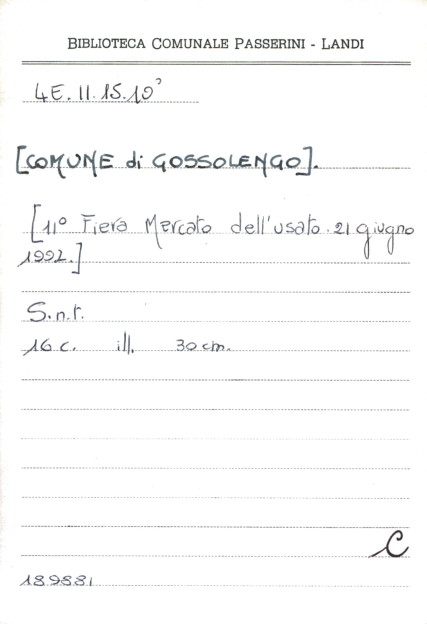 BIBLIOTECA COMUNALE PASSERINI - LANDI
4E. II. 15. 10³
[COMUNE di GOSSOLENGO].
[11° Fiera Mercato dell'usato. 21 giugno
1992.]
S.n.t.
16 c. ill. 30 cm.
C
189881